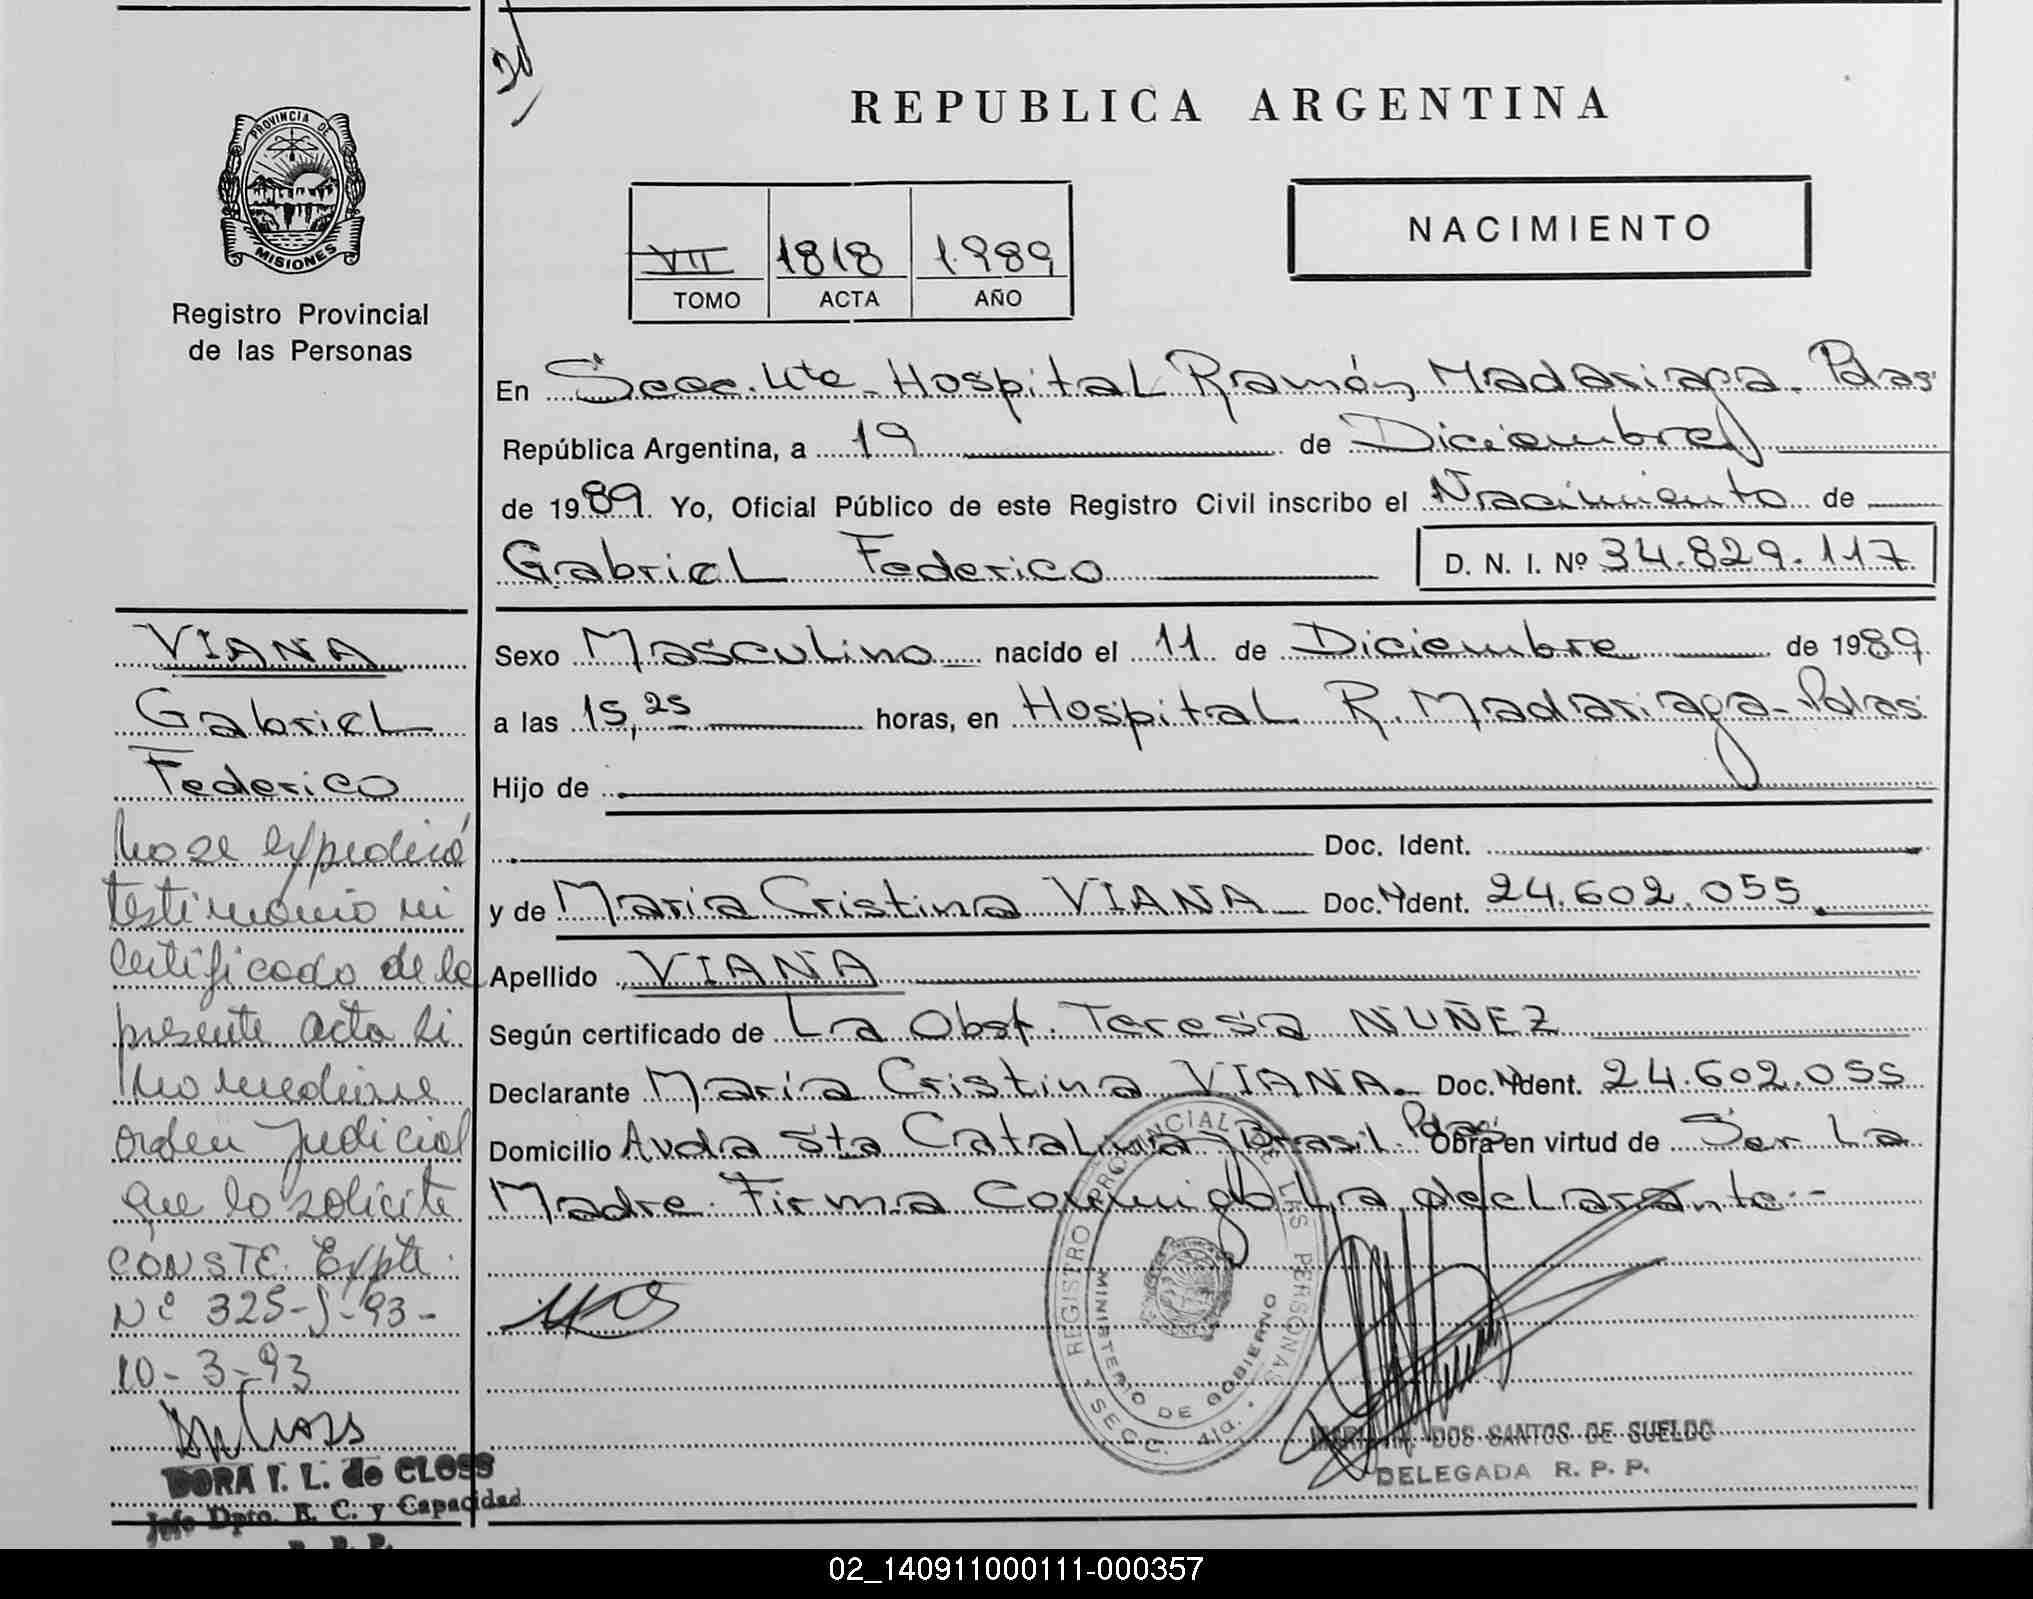 REPUBLICA ARGENTINA
PROVINCIA DE
MISIONES
Registro Provincial
de las Personas
NACIMIENTO
VII 1818 1989
TOMO ACTA AÑO
En Secc. 4ta - Hospital Ramón Madariaga - Pdas
República Argentina, a 19 de Diciembre
de 1989. Yo, Oficial Público de este Registro Civil inscribo el Nacimiento de
Gabriel Federico D. N. I. Nº 34.829.117
Sexo Masculino nacido el 11 de Diciembre de 1989.
a las 15,25 horas, en Hospital R. Madariaga - Pdas
Hijo de
Doc. Ident.
y de Maria Cristina VIANA Doc. Ident. 24.602.055
Apellido VIANA
Según certificado de La Obst. Teresa NUÑEZ
Declarante María Cristina VIANA Doc. Ident. 24.602.055
Domicilio Avda Sta Catalina y Brasil. Pdas Obra en virtud de Ser La
Madre. Firma Conmigo La declarante.-
VIANA
Gabriel
Federico
No se expedirá
testimonio ni
certificado de la
presente acta si
no mediare
orden Judicial
que lo solicite
CONSTE. Expte.
Nº 325-J-93-
10-3-93
DORA I. L. de CLOSS
Jefe Dpto. R. C. y Capacidad
R. P. P.
REGISTRO PROVINCIAL DE LAS PERSONAS
MINISTERIO DE GOBIERNO
SECC. 4ta.
DOS SANTOS DE SUELDO
DELEGADA R. P. P.
02_140911000111-000357